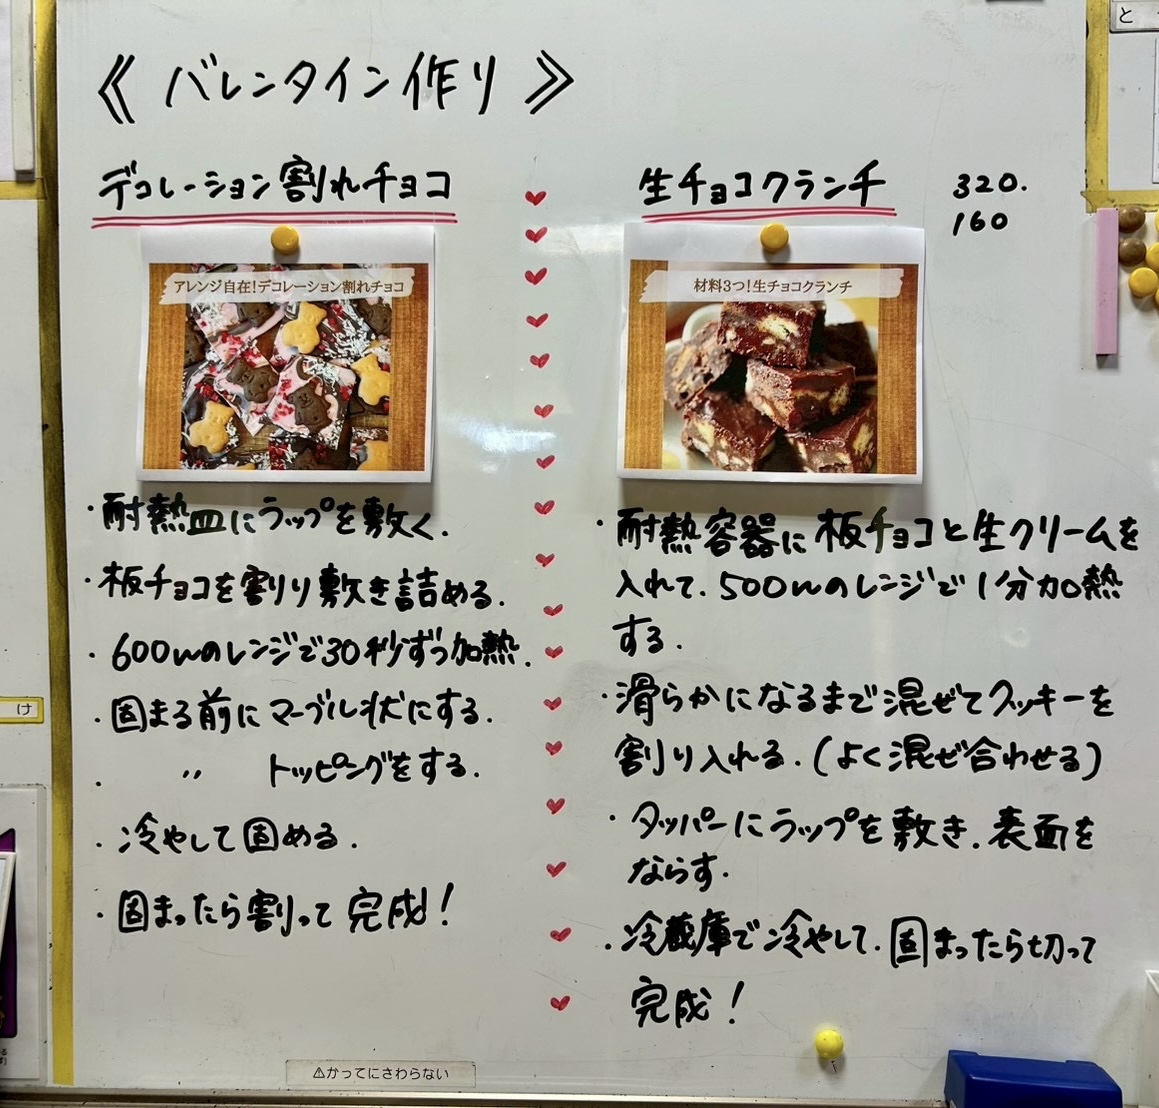 《バレンタイン作り》
デコレーション割れチョコ
アレンジ自在!デコレーション割れチョコ
・耐熱皿にラップを敷く.
・板チョコを割り敷き詰める.
・600wのレンジで30秒ずつ加熱.
・固まる前にマーブル状にする.
・〃 トッピングをする.
・冷やして固める.
・固まったら割って完成!
生チョコクランチ
320.
160
材料3つ!生チョコクランチ
・耐熱容器に板チョコと生クリームを
入れて.500wのレンジで1分加熱
する.
・滑らかになるまで混ぜてクッキーを
割り入れる.(よく混ぜ合わせる)
・タッパーにラップを敷き.表面を
ならす.
・冷蔵庫で冷やして.固まったら切って
完成!
⚠かってにさわらない
け
と